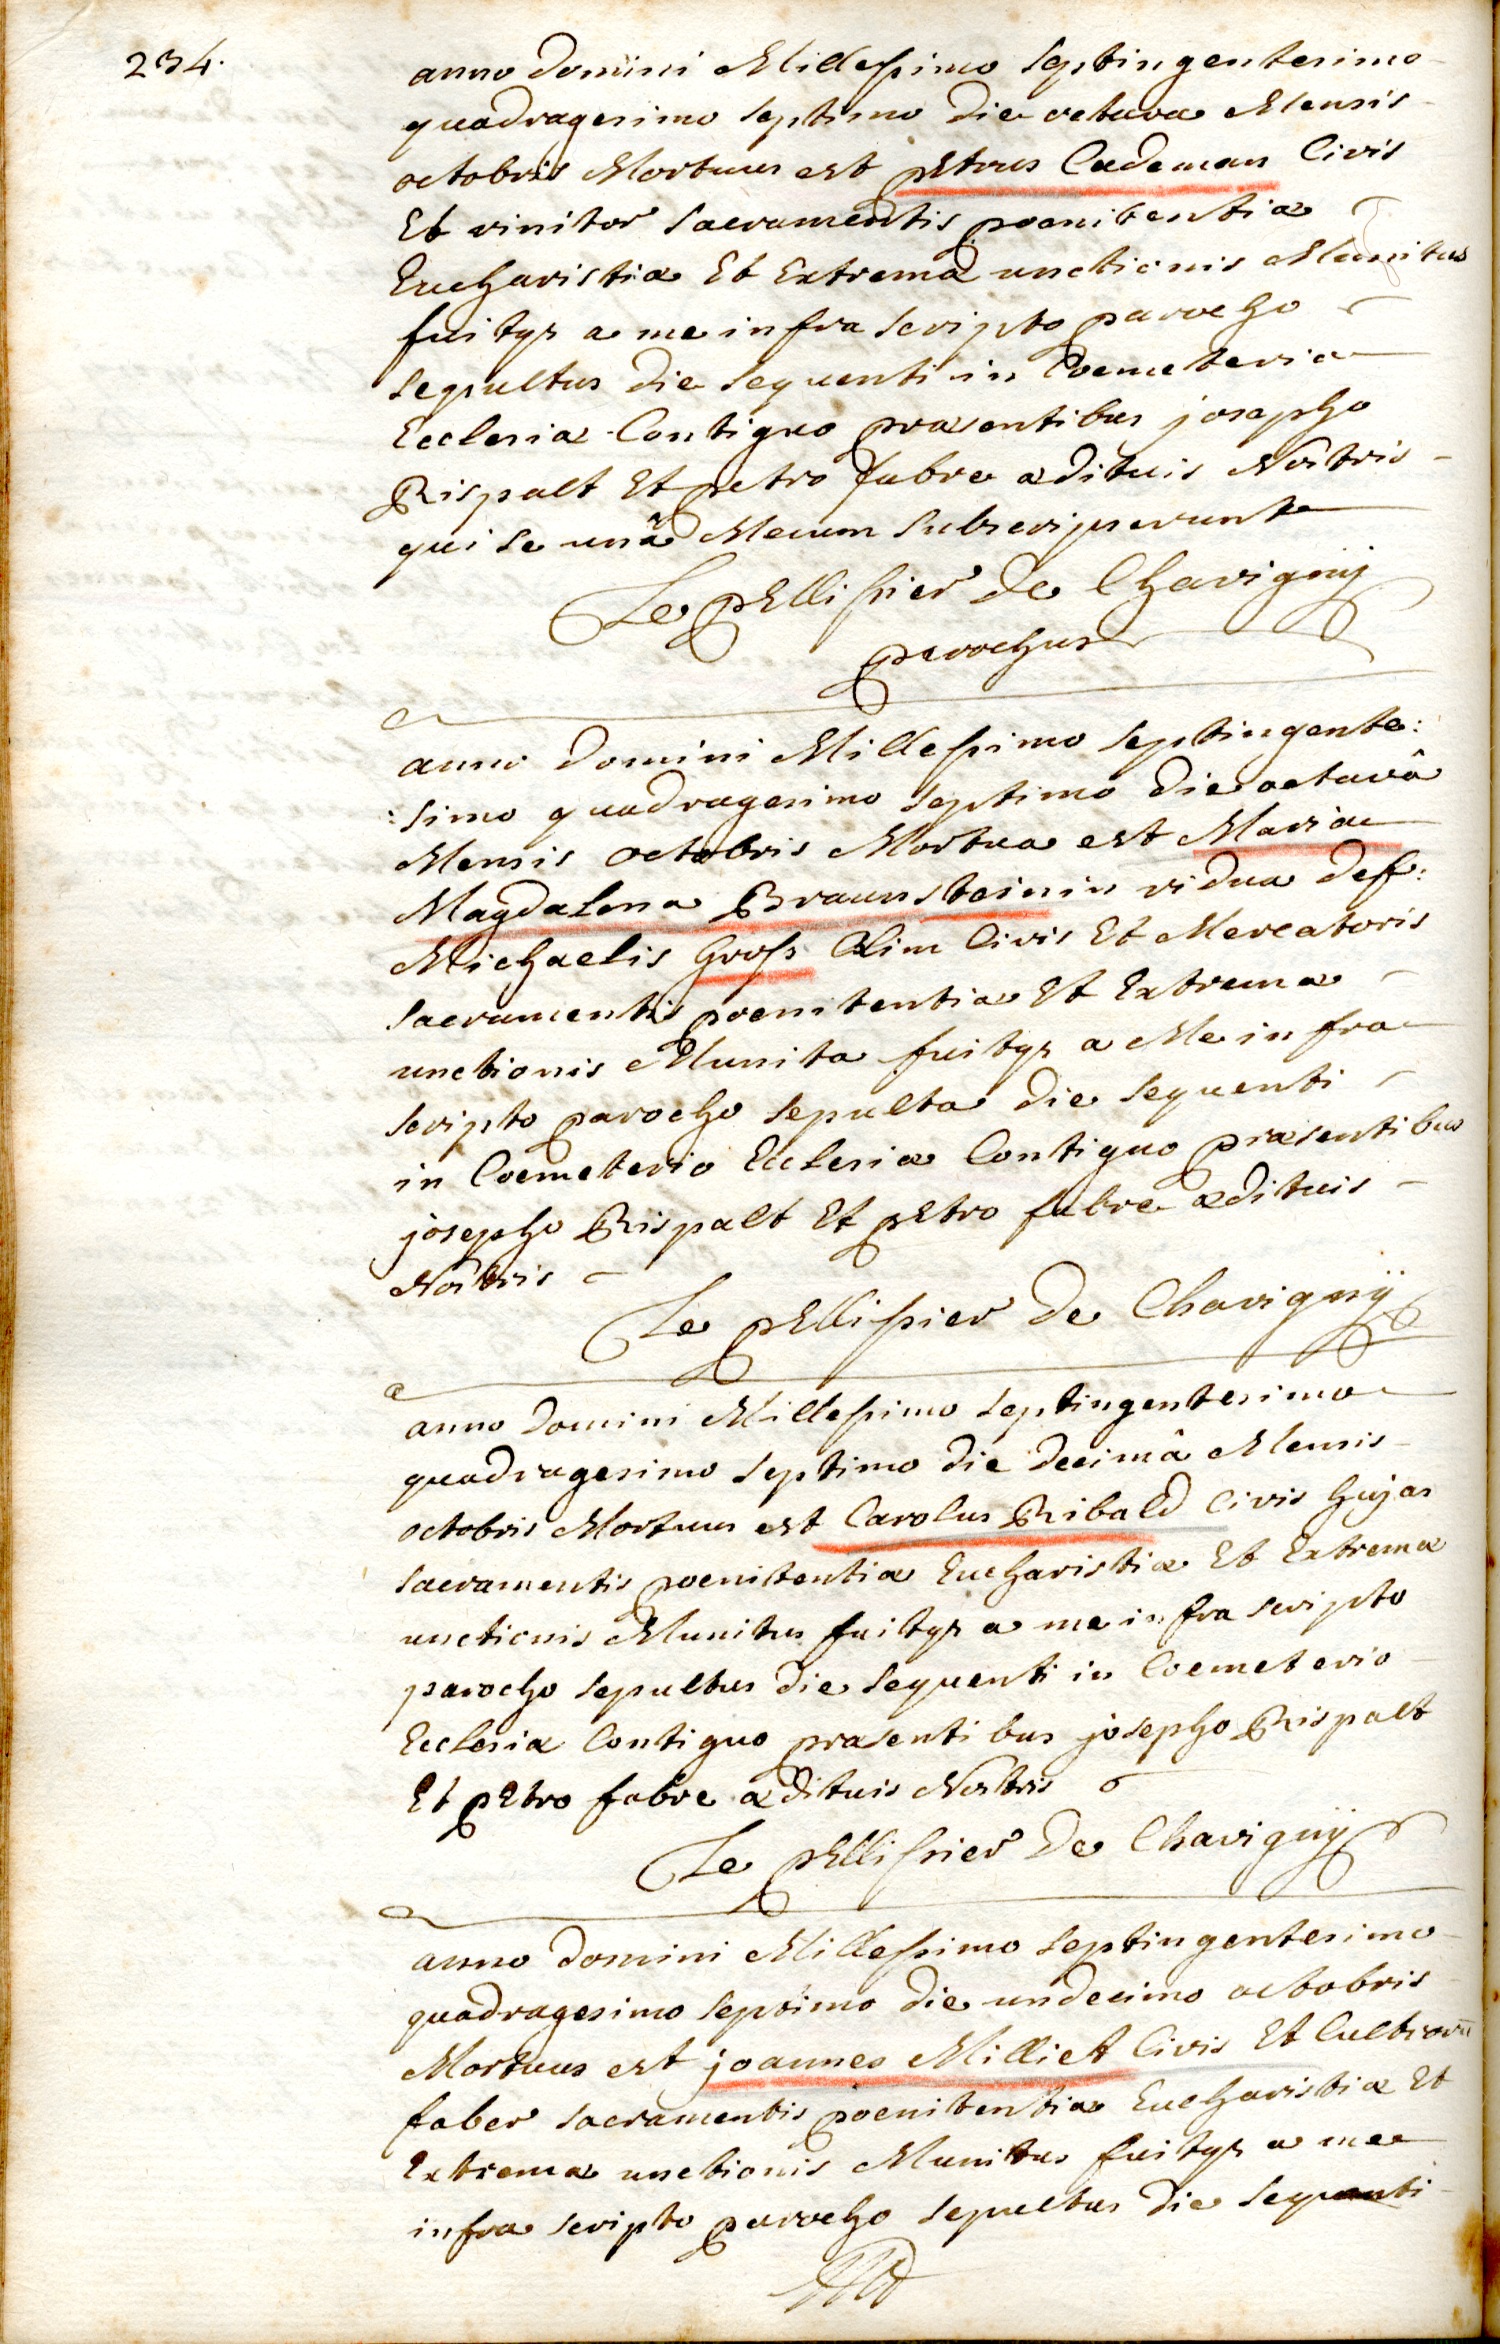 234.
anno domini Millesimo septingentesimo
quadragesimo septimo die octava Mensis
octobris Mortuus est petrus Cademan Civis
Et vinitor sacramentis poenitentiæ
Eucharistiæ Et Extremæ unctionis Munitus
fuitq3 a me infra scripto parocho
sepultus die sequenti in Coemeterio
Ecclesiæ Contiguo præsentibus josepho
Rispalt Et petro fabre ædituis Nostris
qui se unà Mecum subscripserunt
Le pellissier de Chavignÿ
parochus
anno domini Millesimo septingente:
:simo quadragesimo septimo die octavâ
Mensis octobris Mortua est Maria
Magdalena Braunsteinin vidua def:
Michaelis Gross Olim Civis Et Mercatoris
sacramentis poenitentiæ Et Extremæ
unctionis Munita fuitq3 a Me infra
scripto parocho sepulta die sequenti
in Coemeterio Ecclesiæ Contiguo præsentibus
josepho Rispalt Et petro fabre ædituis
Nostris
Le pellissier de Chavignÿ
anno domini Millesimo septingentesimo
quadragesimo septimo die decimâ Mensis
octobris Mortuus est Carolus Ribald Civis hujas
sacramentis poenitentiæ Eucharistiæ Et Extremæ
unctionis Munitus fuitq3 a me infra scripto
parocho sepultus die sequenti in Coemeterio
Ecclesiæ Contiguo præsentibus josepho Rispalt
Et petro fabre ædituis Nostris
Le pellissier de Chavignÿ
anno domini Millesimo septingentesimo
quadragesimo septimo die undecimo octobris
Mortuus est joannes Milliet Civis Et Cultrorū
faber sacramentis poenitentiæ Eucharistiæ Et
Extremæ unctionis Munitus fuitq3 a me
infra scripto parocho sepultus die sequenti